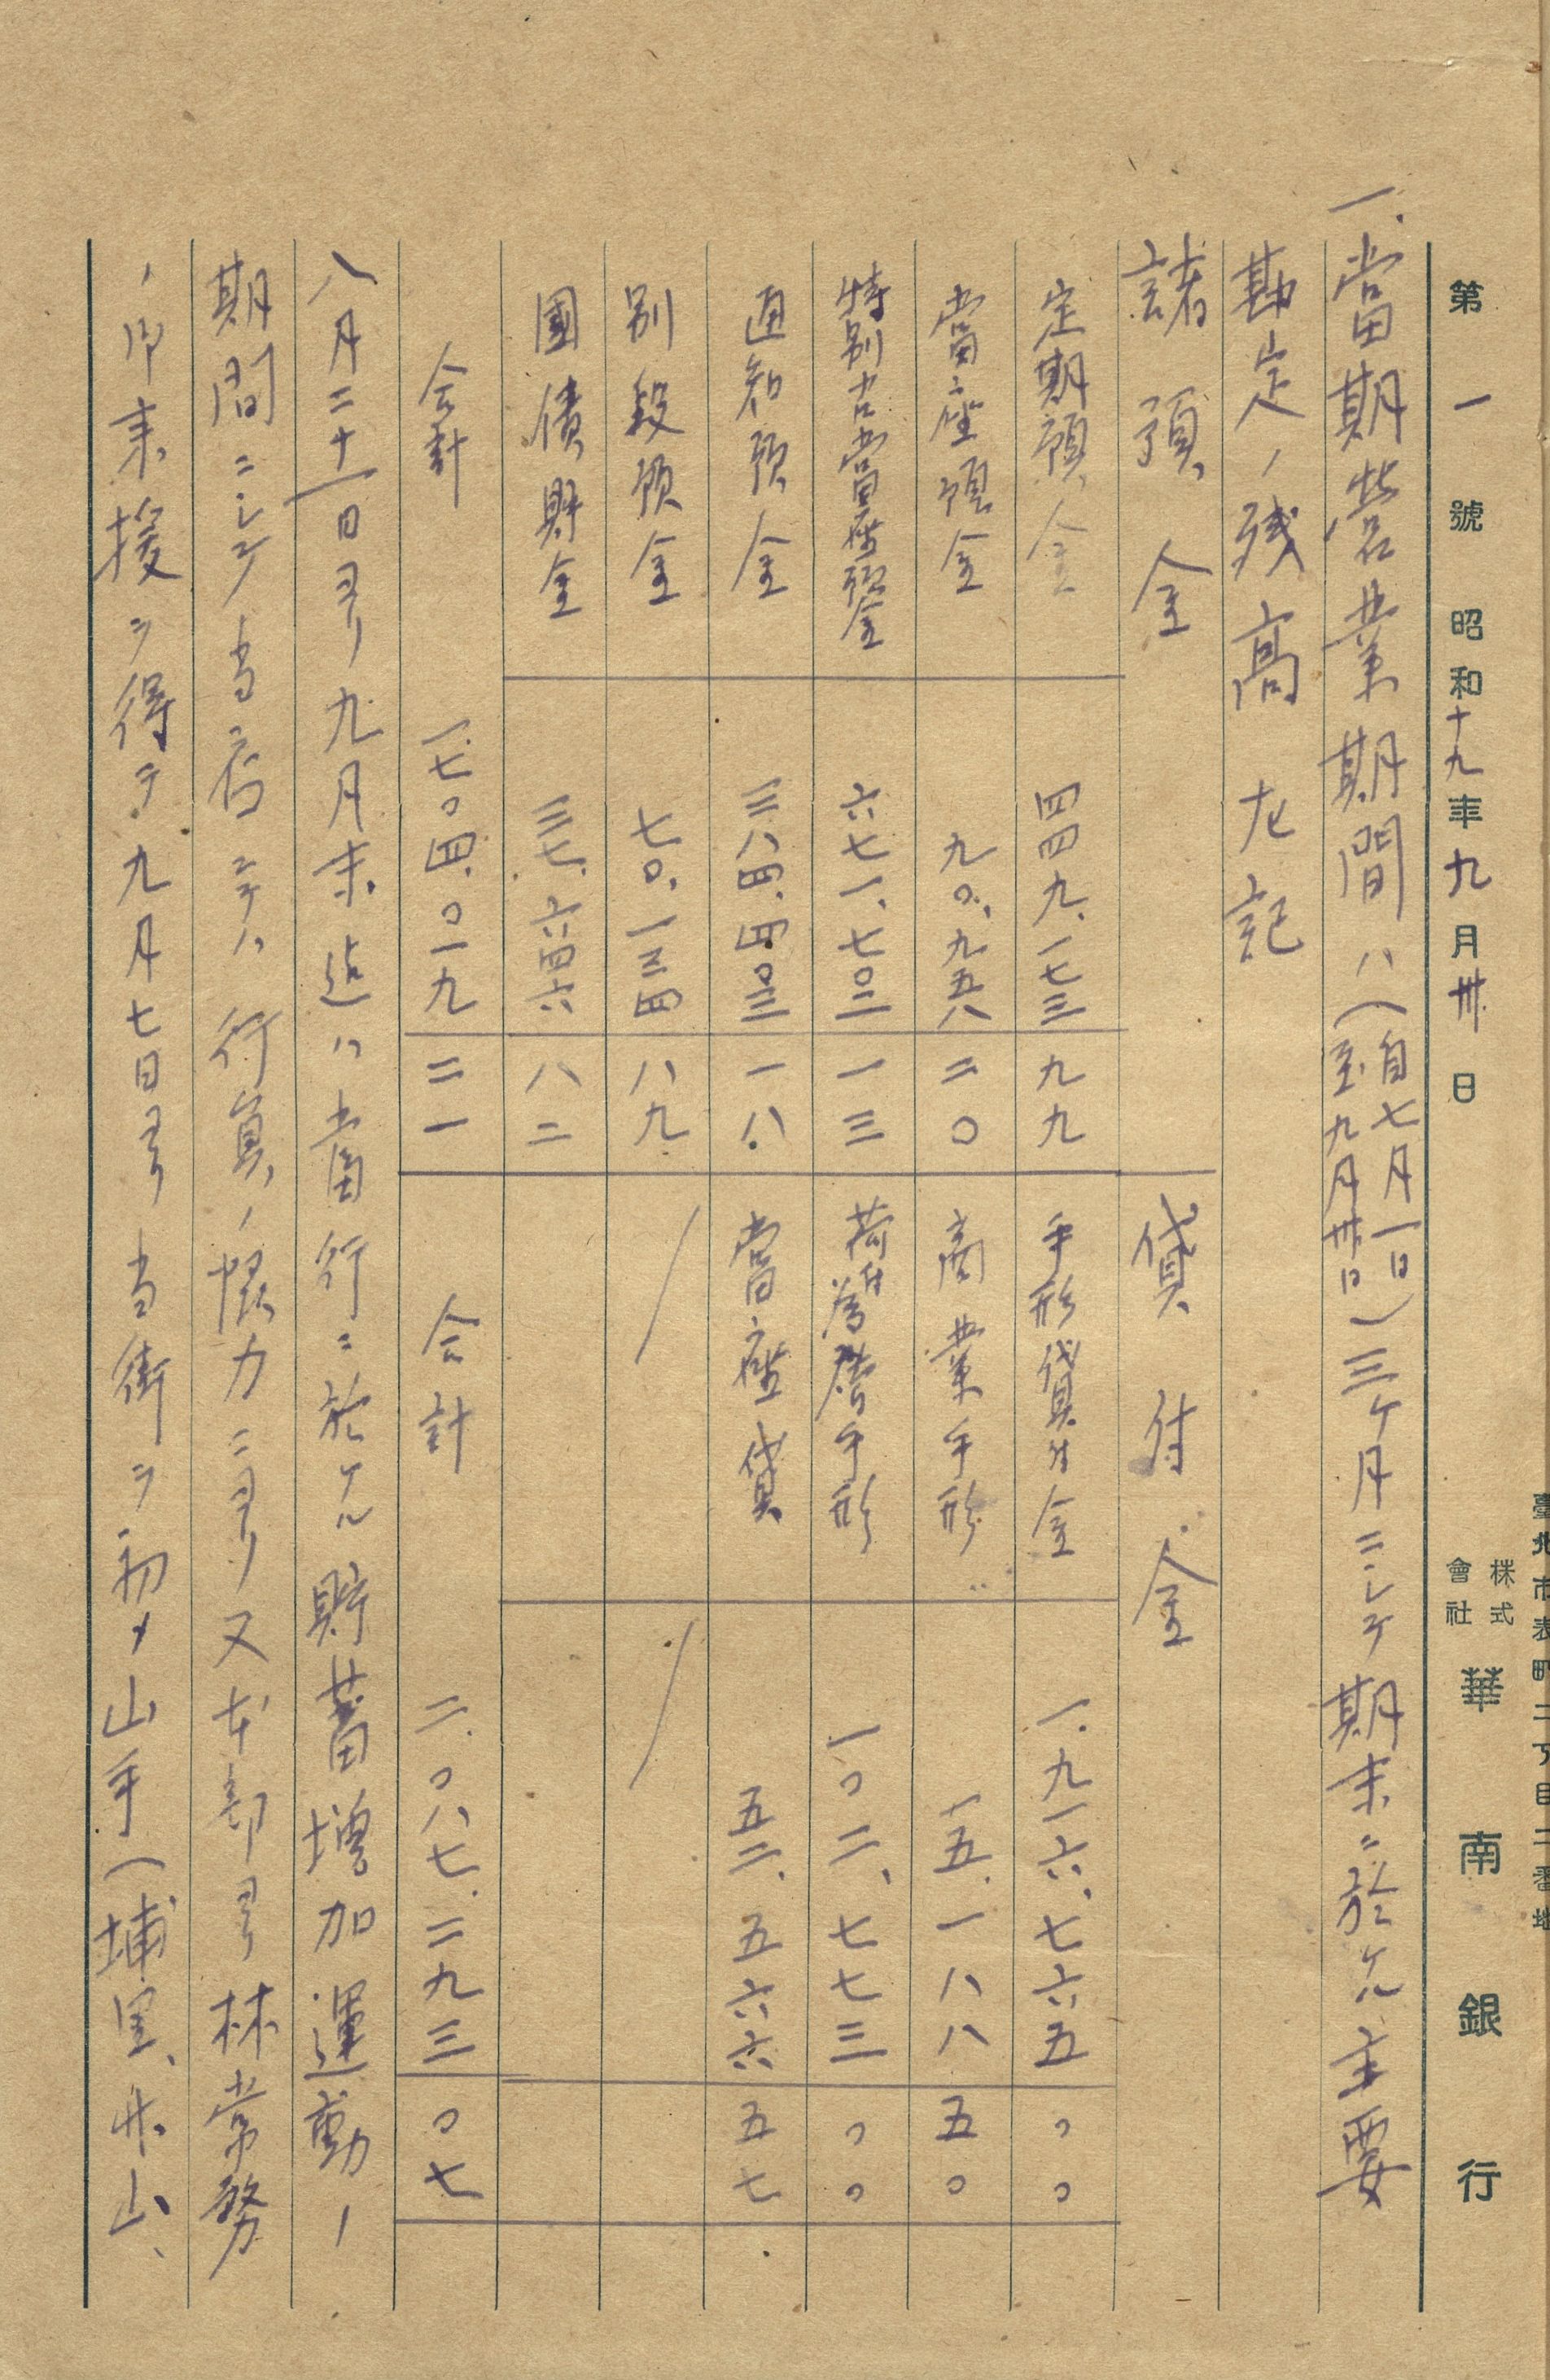 臺北市表町二丁目二番地
株式會社 華南銀行
第一號 昭和十九年九月卅日
一、當期営業期間ハ(自七月一日至九月卅日)三ケ月ニシテ期末ニ於ケル主要
勘定ノ残高左記
諸預金 貸付金
定期預金 四四九、一七三 九九 手形貸付金 一、九一六、七六五 〇〇
當座預金 九〇、九五八 二〇 商業手形 一五、一八八 五〇
特別當座預金 六七一、七〇二 一三 荷付為替手形 一〇二、七七三 〇〇
通知預金 三八四、四〇三 一八 當座貸 五二、五六六 五七
別段預金 七〇、一三四 八九
國債貯金 三七、六四六 八二
合計 一、七〇四、〇一九 二一 合計 二、〇八七、二九三 〇七
八月二十一日ヨリ九月末迄ハ當行ニ於ケル貯蓄増加運動ノ
期間ニシテ当店ニテハ行員ノ懇力ニヨリ又本部ヨリ林常務
ノ御来援ヲ得テ九月七日ヨリ当街ヲ初メ山手(埔里、水山、